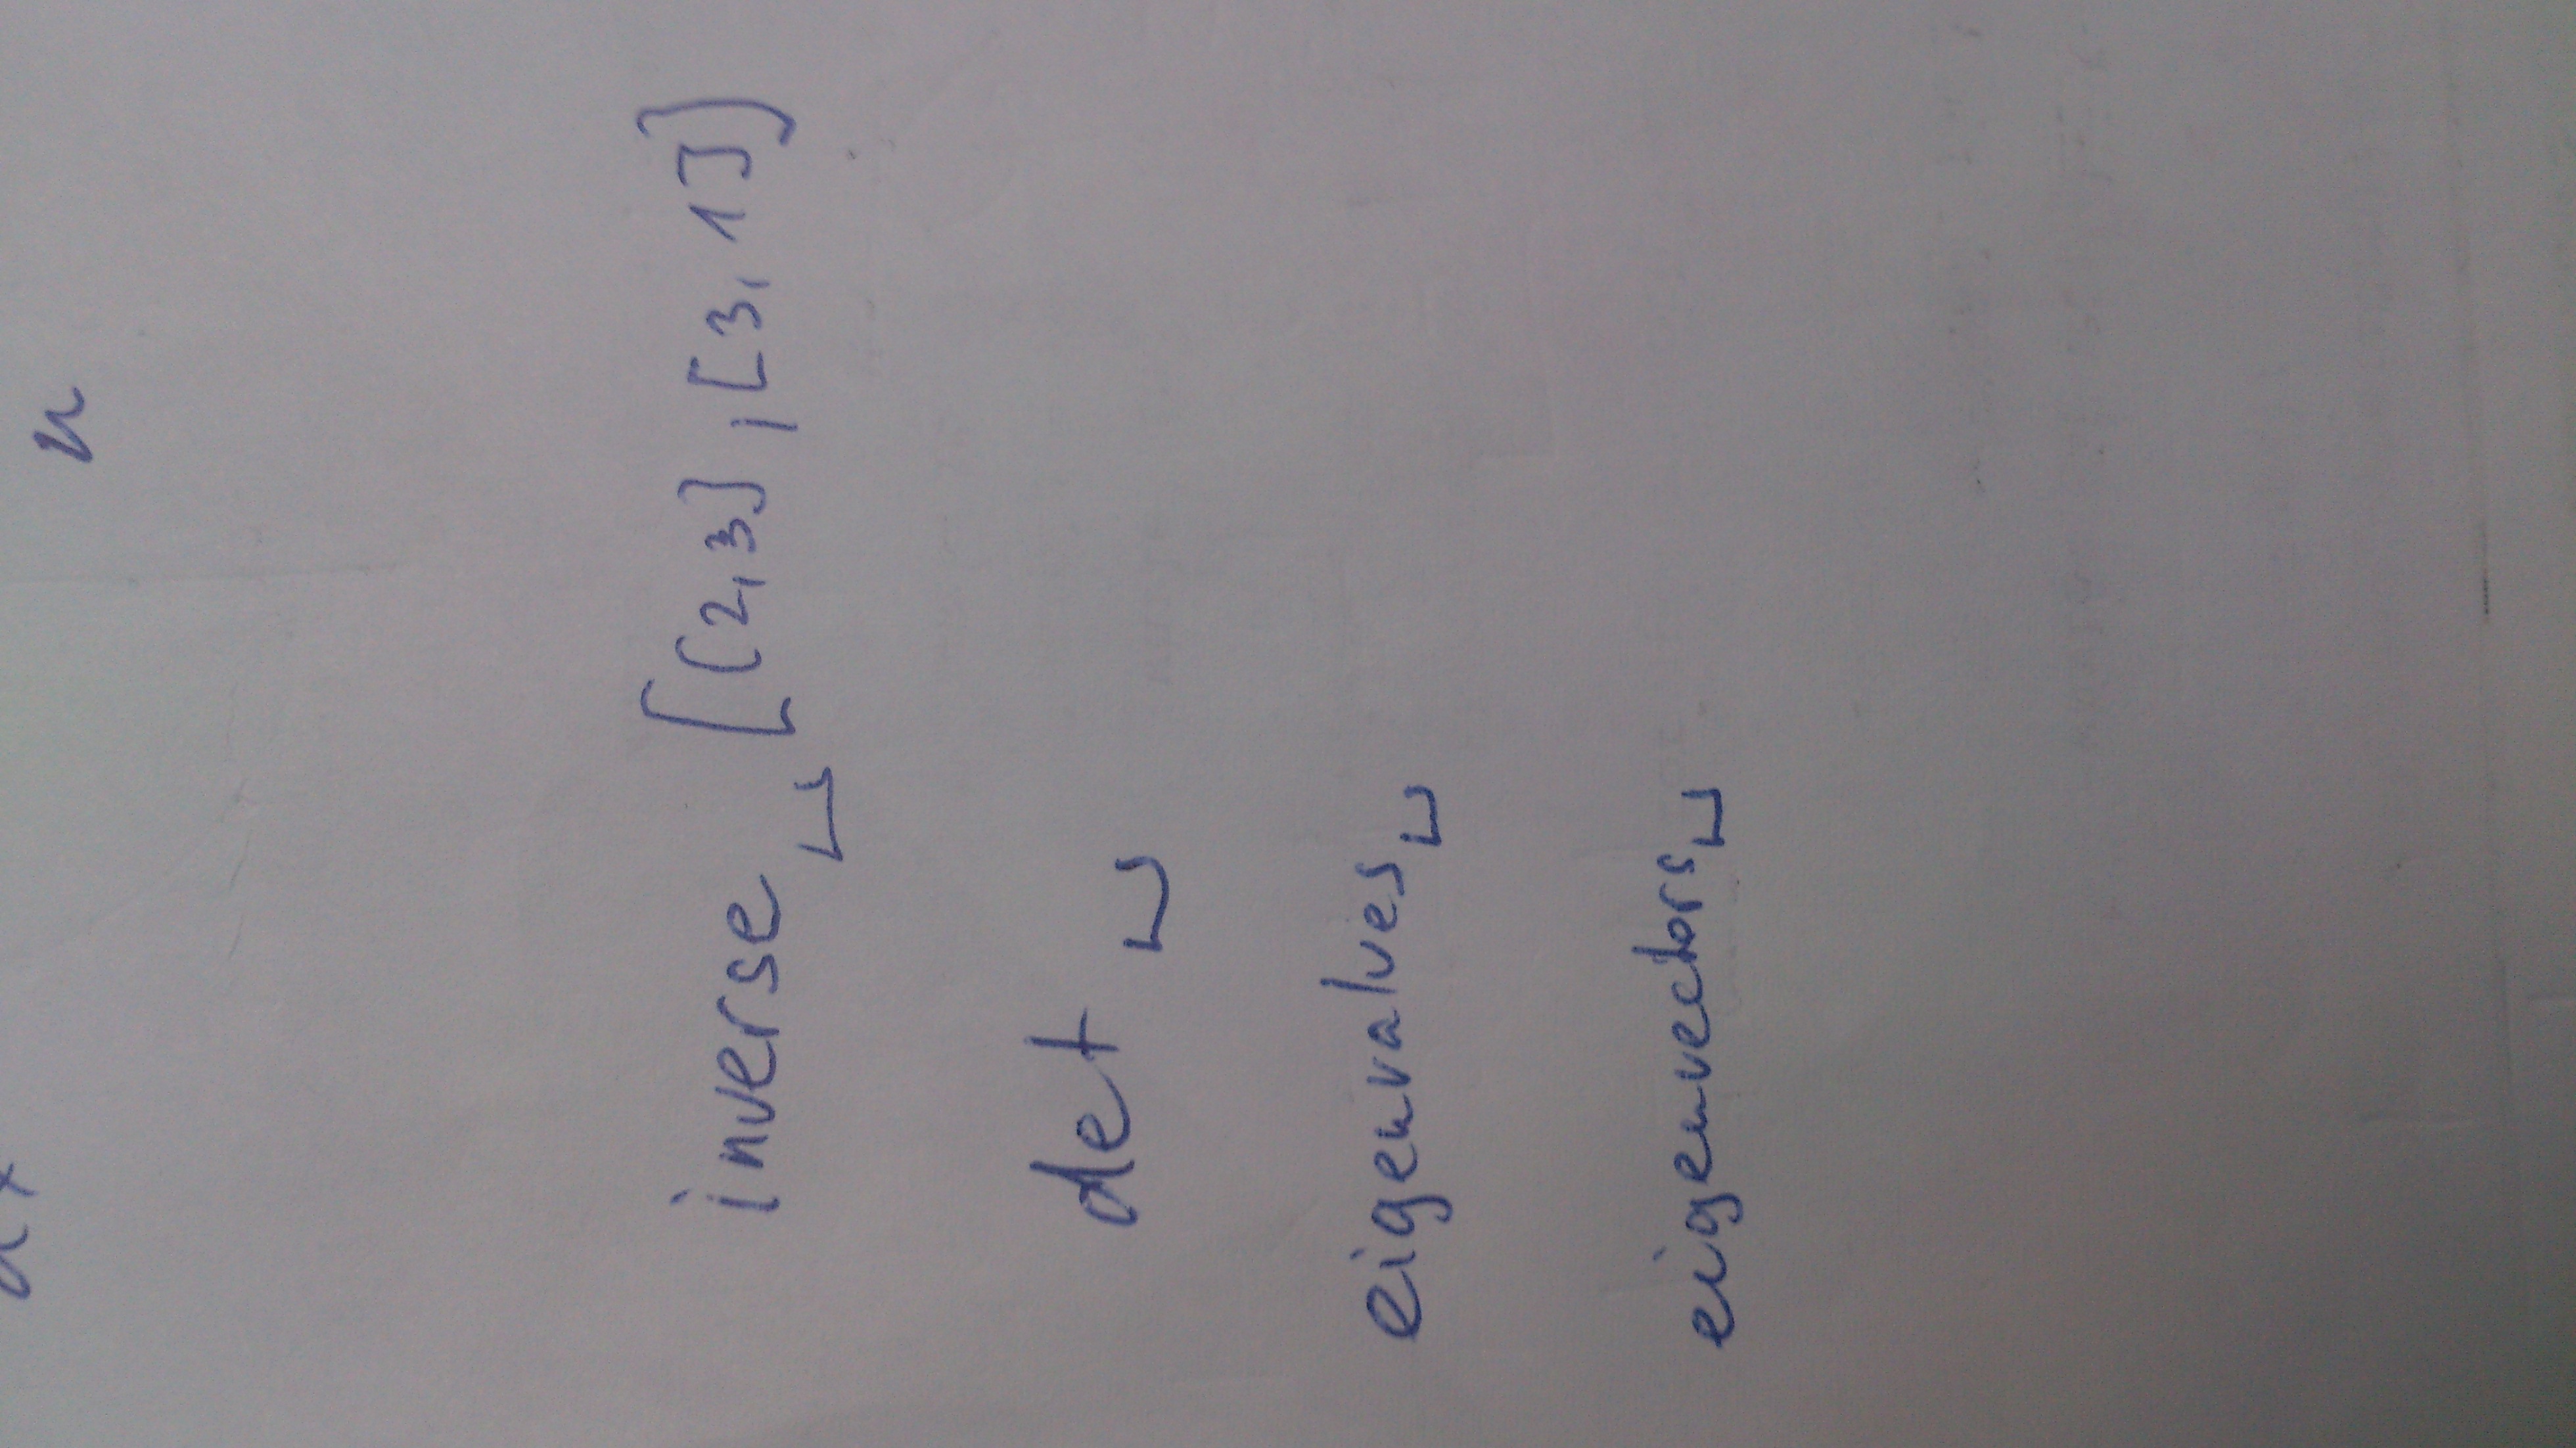 dx
n
inverse␣[[2,3],[3,1]]
det␣
eigenvalues␣
eigenvectors␣